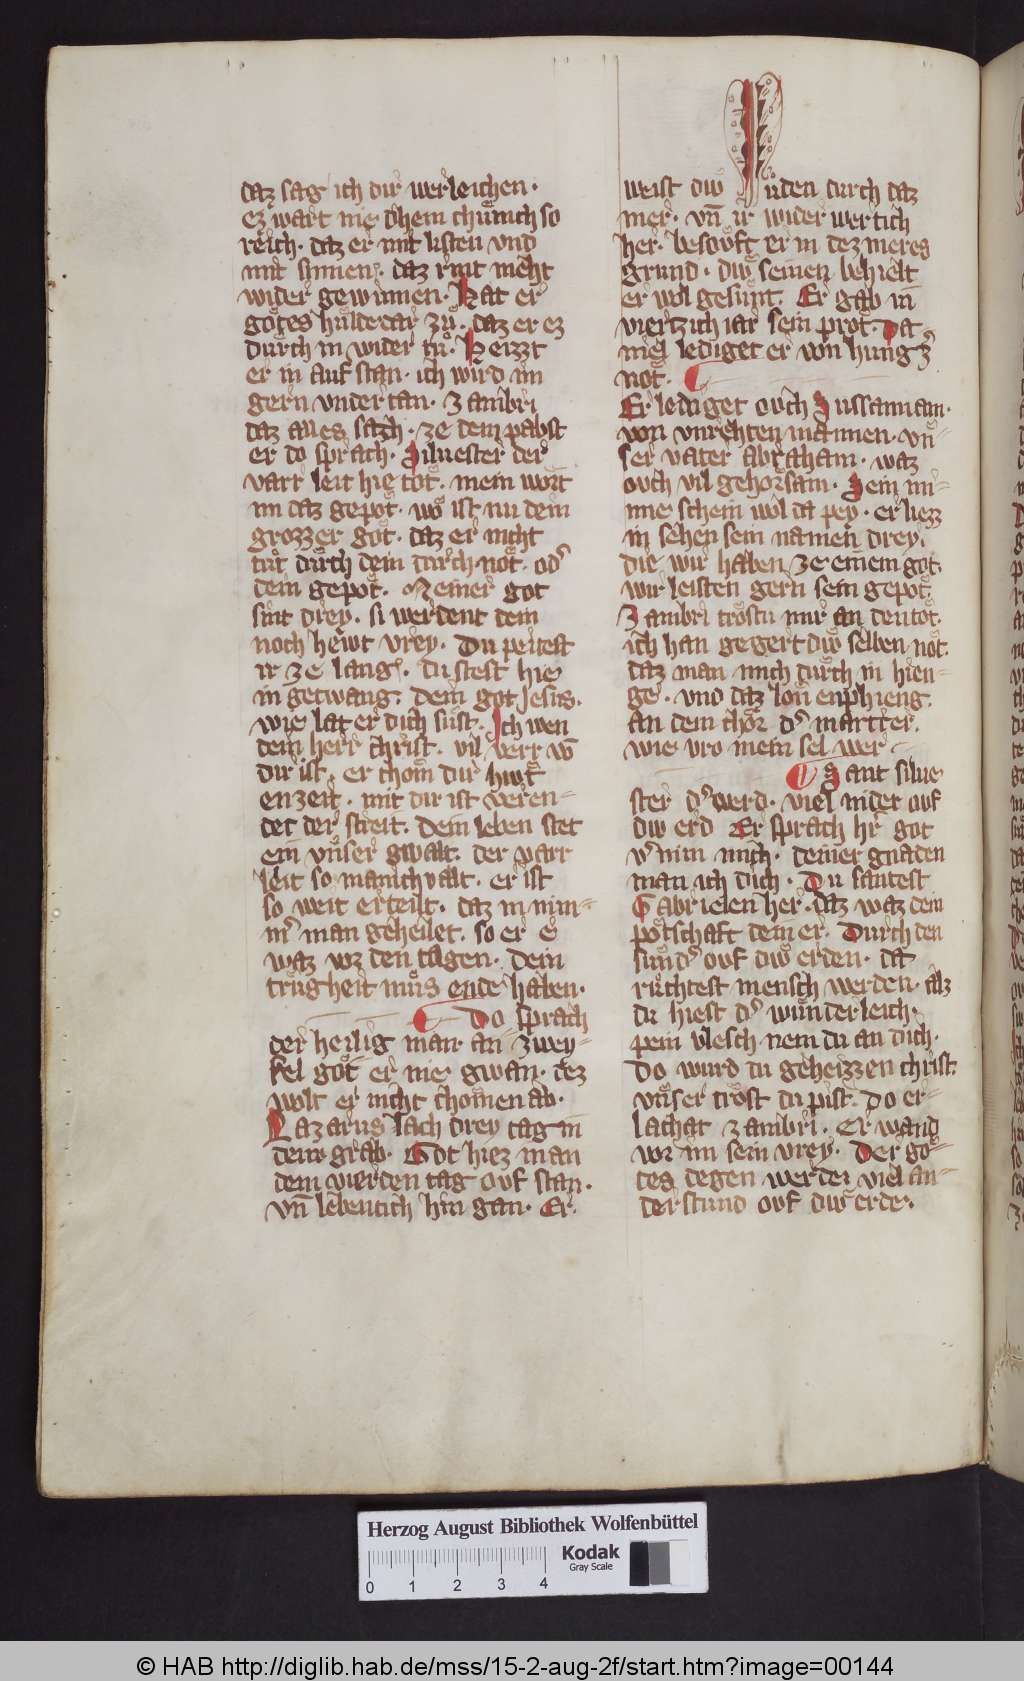 daz sag ich dir werleichen·
ez wart nie dhein chůnich so
reich· daz er mit listen vnd
mit sinnen· daz rint nieht
wider gewinnen· Hat er
gotes hulde dar zů· daz er ez
durch in wider tů· Heizzt
er in auf stan· ich wird im
gern vndertan· Zambri
daz alles sach· ze dem pabst
er do sprach· Siluester der
varr leit hie tot· mein wort
im daz gepot· wo ist nu dein
grozzer got· daz er nicht
tut durch dein durch not· od͛
dein gepot· Meiner got
sint drey· si werdent dein
noch hewt vrey· Du peitest
ir ze lang· du stest hie
in getwang· dein got Jesus·
wie lat er dich sust· Ich wen
dein herr christ· vil verr vō
dir ist· er chom dir hiwt
enzeit· mit dir ist veren-
det der streit· Dein leben stet
ein vnser gwalt· der varr
leit so manichvalt· er ist
so weit erteilt· daz in nim-
m͛ man geheilet· so er e
waz vor den tagen· Dein
trugheit můs ende haben·
Do sprach
der heilig man· an zwey-
fel got er nie gwan· dez
wolt er nicht chomen ab·
Lazarus lach drey tag in
dem grab· Got hiez man
dem vierden tag ovf stan·
vn̄ lebentich hin gan· Er
weist diw iuden durch daz
mer· vn̄ ir wider wertich
her· besovft er in dez meres
grund· diw seinen behielt
er wol gesunt· Er gab in
viertzich iar sein prot· Da
mit lediget er von hung͛
not·
Er lediget ovch Sussannam·
von vnrehten mannen· vn-
ser vater abraham· waz
ovch vil gehorsam· Sein mi-
nne schein wol da pey· er liezz
in sehen sein namen drey·
die wir haben ze einem got·
wir leisten gern sein gepot·
Zambri trostu mir an den tot·
ich han gegert diw selben not·
daz man mich durch in hien-
ge· vnd daz lon enphieng·
an dem chor d͛ martrer·
wie vro mein sel wer
Sant silue
ster d͛ werd· viel nider ovf
diw erd Er sprach hr got
v͛nim mich· deiner gnaden
man ich dich· Du santest
Gabrielen her· daz waz dein
potschaft dein er· Durch den
sund͛ ovf diw erden· dat
ruchtest mensch werden· alz
du hiest d͛ wunderleich·
pein vlesch nem du an dich·
Do wurd du geheizzen christ·
vnser trost du pist· Do er-
lachat zambri· Er wand
vor im sein vrey· Der go-
tes degen werder viel an-
derstund ovf diw erde·
Herzog August Bibliothek Wolfenbüttel
Kodak
Gray Scale
0 1 2 3 4
© HAB http://diglib.hab.de/mss/15-2-aug-2f/start.htm?image=00144